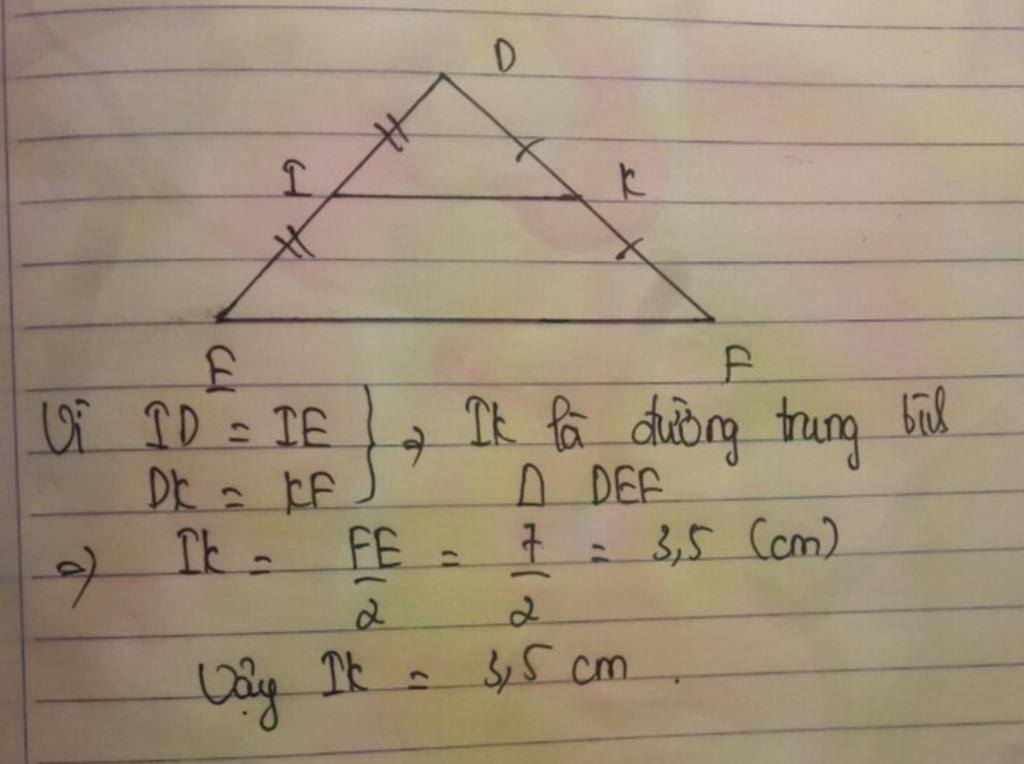 D
I K
E F
Vì ID = IE } => IK là đường trung bình
DK = KF Δ DEF
=> IK = FE/2 = 7/2 = 3,5 (cm)
Vậy IK = 3,5 cm .